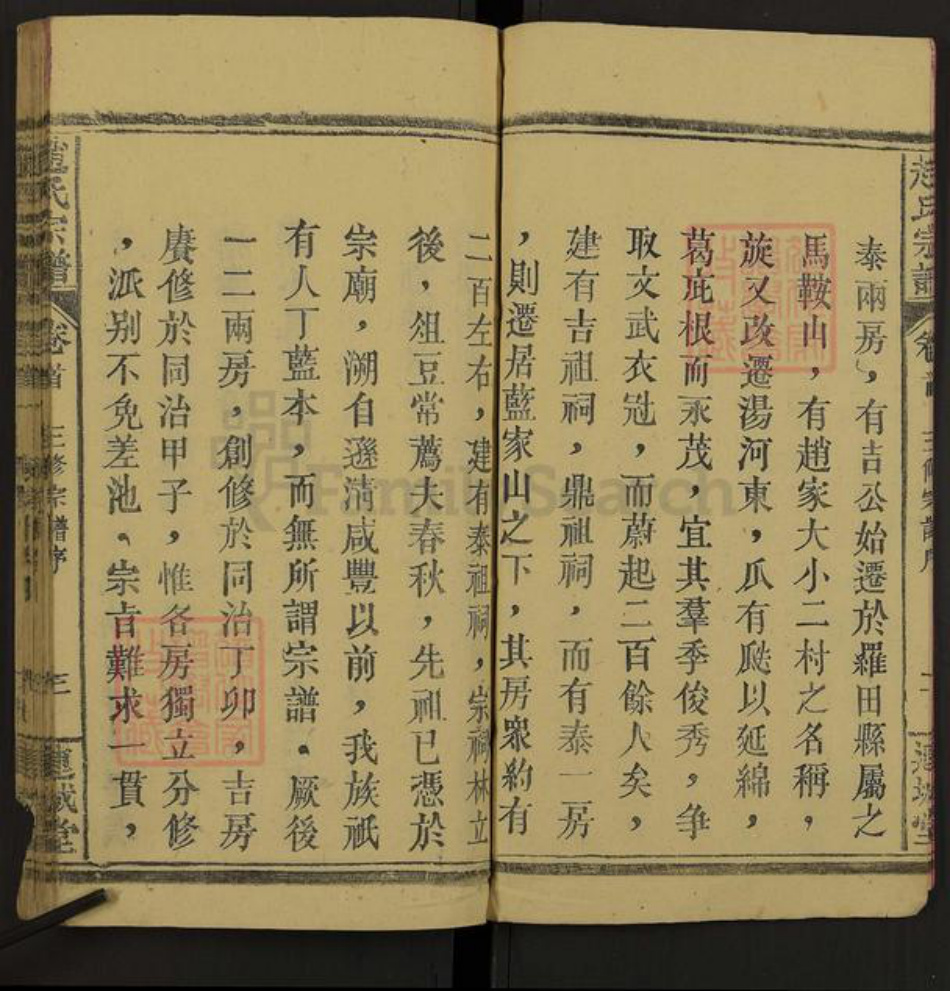 泰兩房，有吉公始遷於羅田縣屬之
馬鞍山，有趙家大小二村之名稱，
旋又改遷湯河東，瓜有瓞以延綿，
葛庇根而永茂，宜其羣季俊秀，争
取文武衣冠，而蔚起二百餘人矣，
建有吉祖祠，鼎祖祠，而有泰一房
，則遷居藍家山之下，其房衆約有
二百左右，建有泰祖祠，宗祠林立
後，俎豆常薦夫春秋，先祖已憑於
宗廟，溯自遜清咸豐以前，我族祇
有人丁藍本，而無所謂宗譜。厥後
一二兩房，創修於同治丁卯，吉房
賡修於同治甲子，惟各房獨立分修
，派别不免差池。宗旨難求一貫，
趙氏宗譜
卷首
三修宗譜序
三
連城堂
FamilySearch